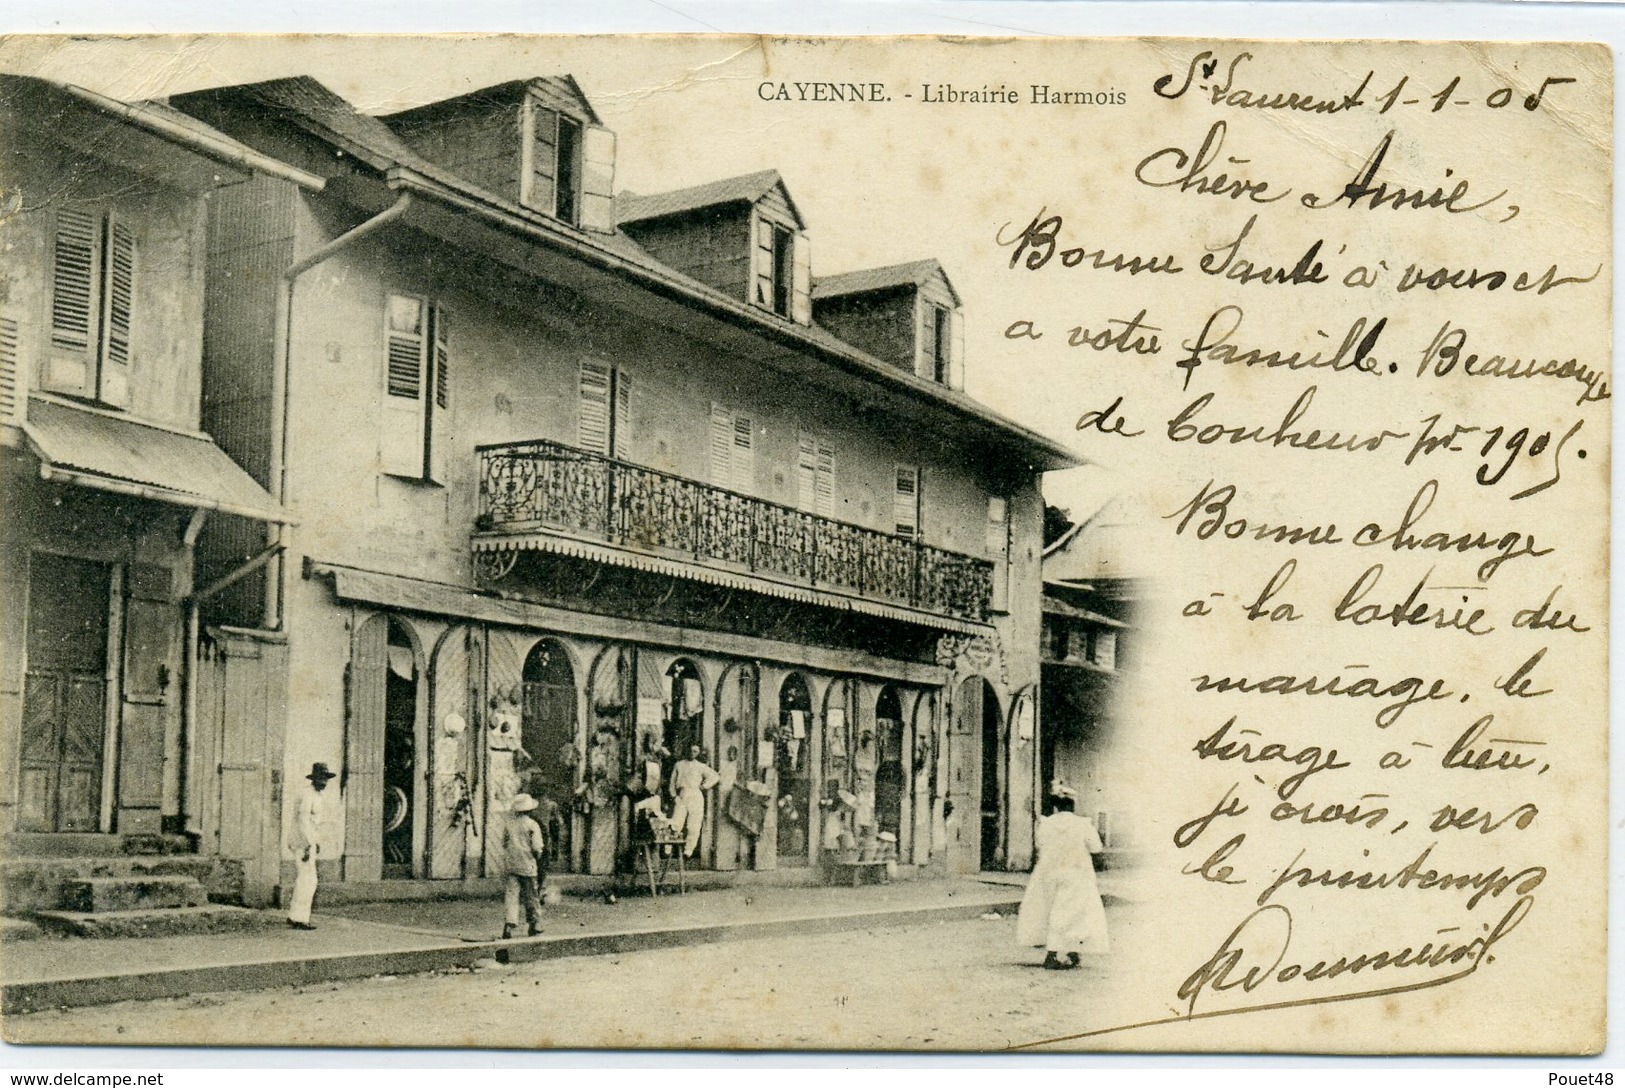 CAYENNE. - Librairie Harmois
St Laurent 1-1-05
Chère Amie,
Bonne Santé à vous et
a votre famille. Beaucoup
de bonheur pr 1905.
Bonne change
à la loterie du
mariage. le
tirage à lieu,
je crois, vers
le printemps
www.delcampe.net
Pouet48